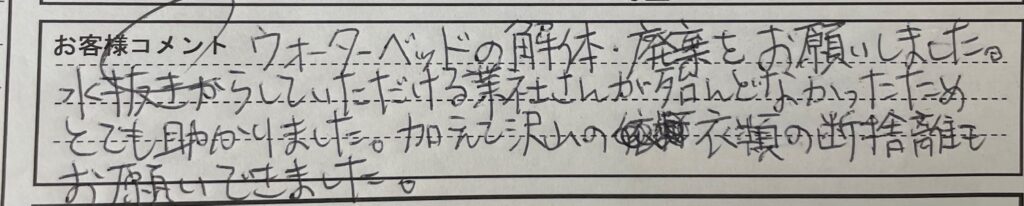 お客様コメント ウォーターベッドの解体・廃棄をお願いしました。
水抜きからしていただける業社さんが殆んどなかったため
とても助かりました。加えて沢山の衣類の断捨離も
お願いできました。